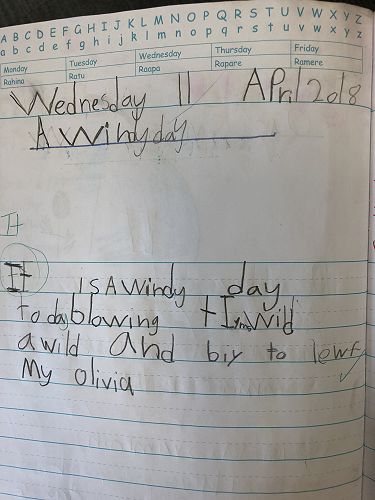 A B C D E F G H I J K L M N O P Q R S T U V W X Y Z
a b c d e f g h i j k l m n o p q r s t u v w x y z
Monday Tuesday Wednesday Thursday Friday
Rahina Ratu Raapa Rapare Ramere
Wednesday 11 April 2018
A windy day
It
It is A windy day
Today blowing
a wild and to
My olivia